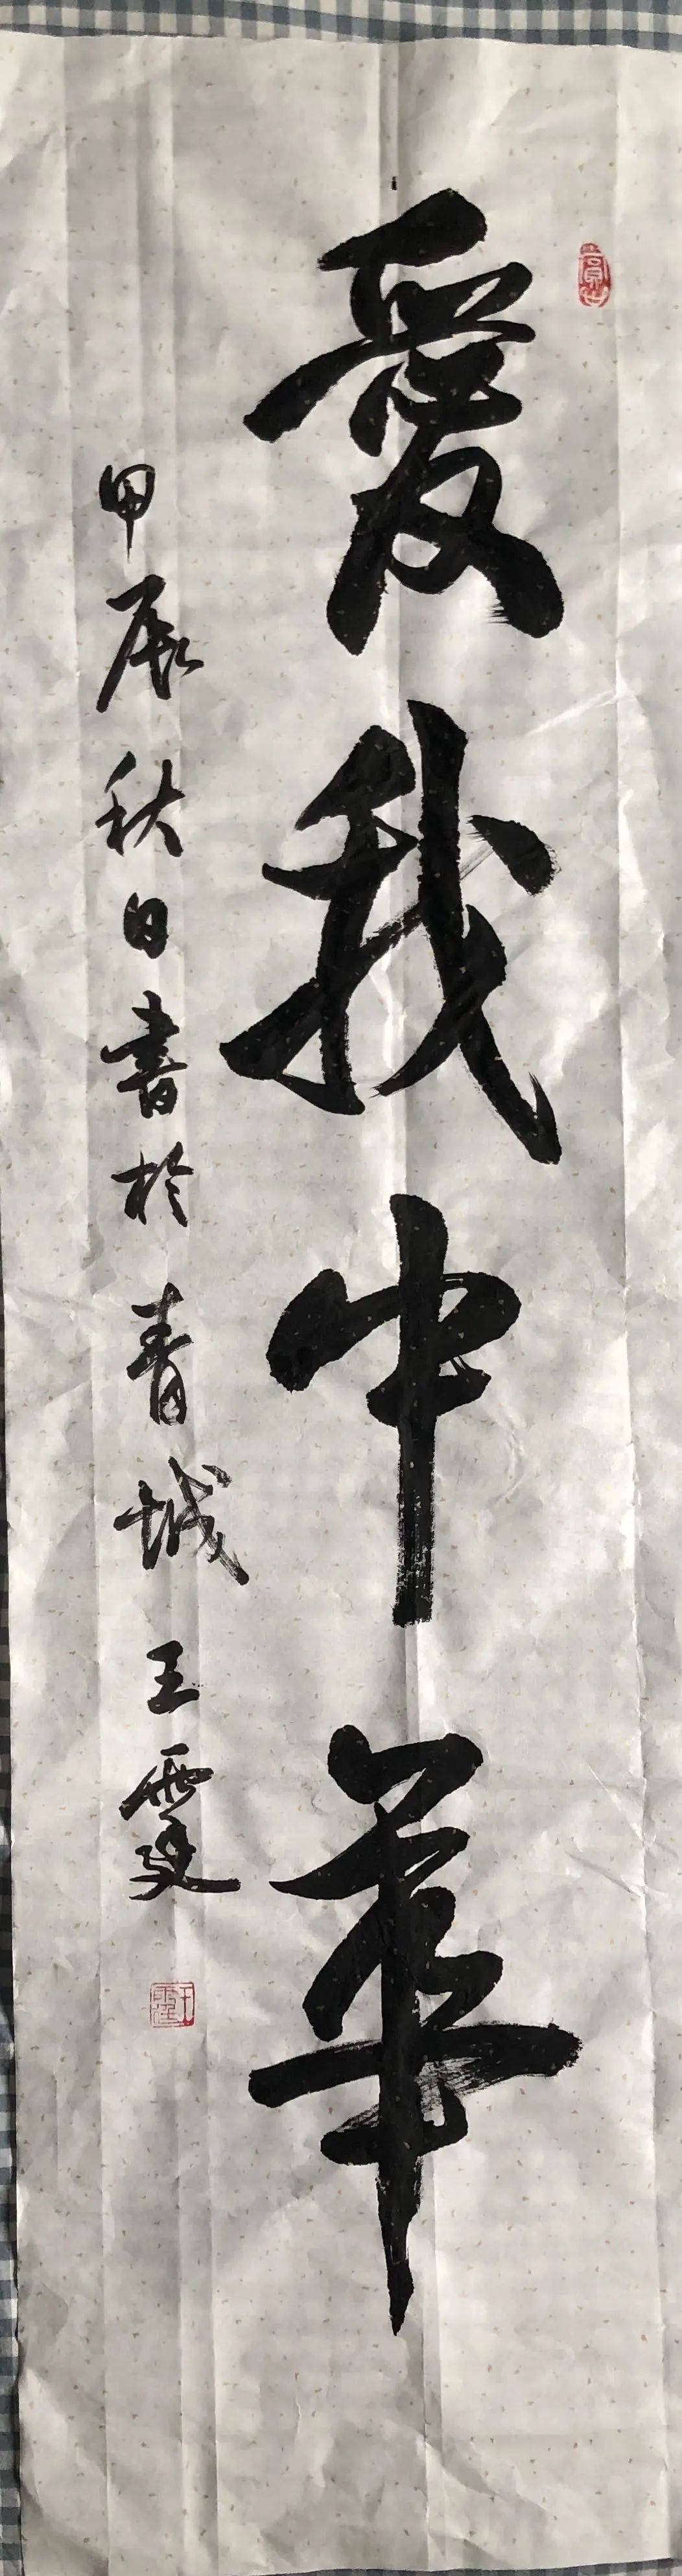 愛我中華
甲辰秋日書於青城 王霆